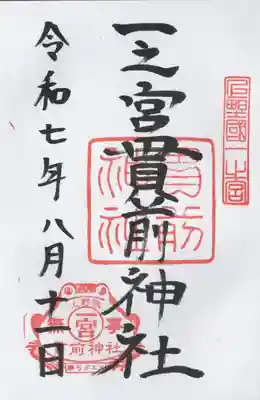 上野國一之宮
一之宮貫前神社
貫前神社
令和七年八月十一日
上野國
一宮
貫前神社